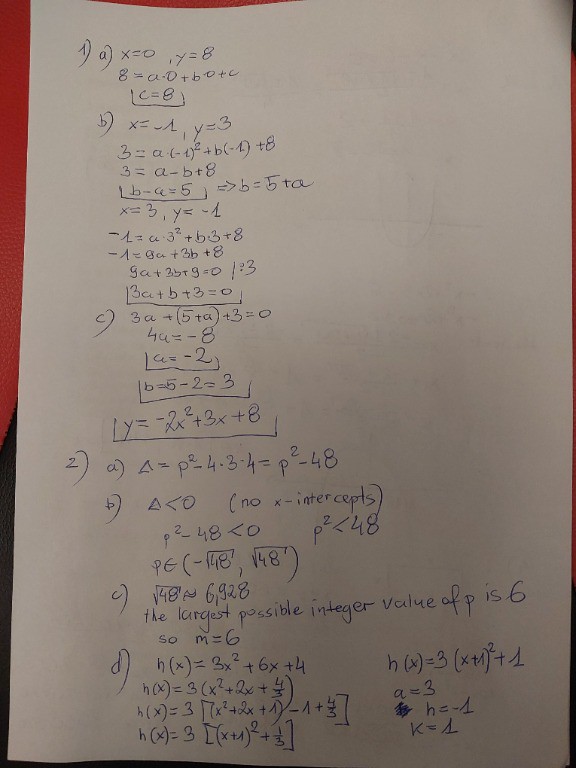 1) a) x=0 , y=8
8 = a·0+b·0+c
c=8
b) x=-1 , y=3
3 = a·(-1)²+b(-1)+8
3 = a-b+8
b-a=5 => b=5+a
x=3 , y=-1
-1=a·3²+b·3+8
-1=9a+3b+8
9a+3b+9=0 |:3
3a+b+3=0
c) 3a+(5+a)+3=0
4a=-8
a=-2
b=5-2=3
y=-2x²+3x+8
2) a) Δ=p²-4·3·4=p²-48
b) Δ<0 (no x-intercepts)
p²-48<0 p²<48
p∈(-√48, √48)
c) √48≈6,928
the largest possible integer value of p is 6
so m=6
d) h(x)=3x²+6x+4
h(x)=3(x²+2x+4/3)
h(x)=3[(x²+2x+1)-1+4/3]
h(x)=3[(x+1)²+1/3]
h(x)=3(x+1)²+1
a=3
h=-1
K=1